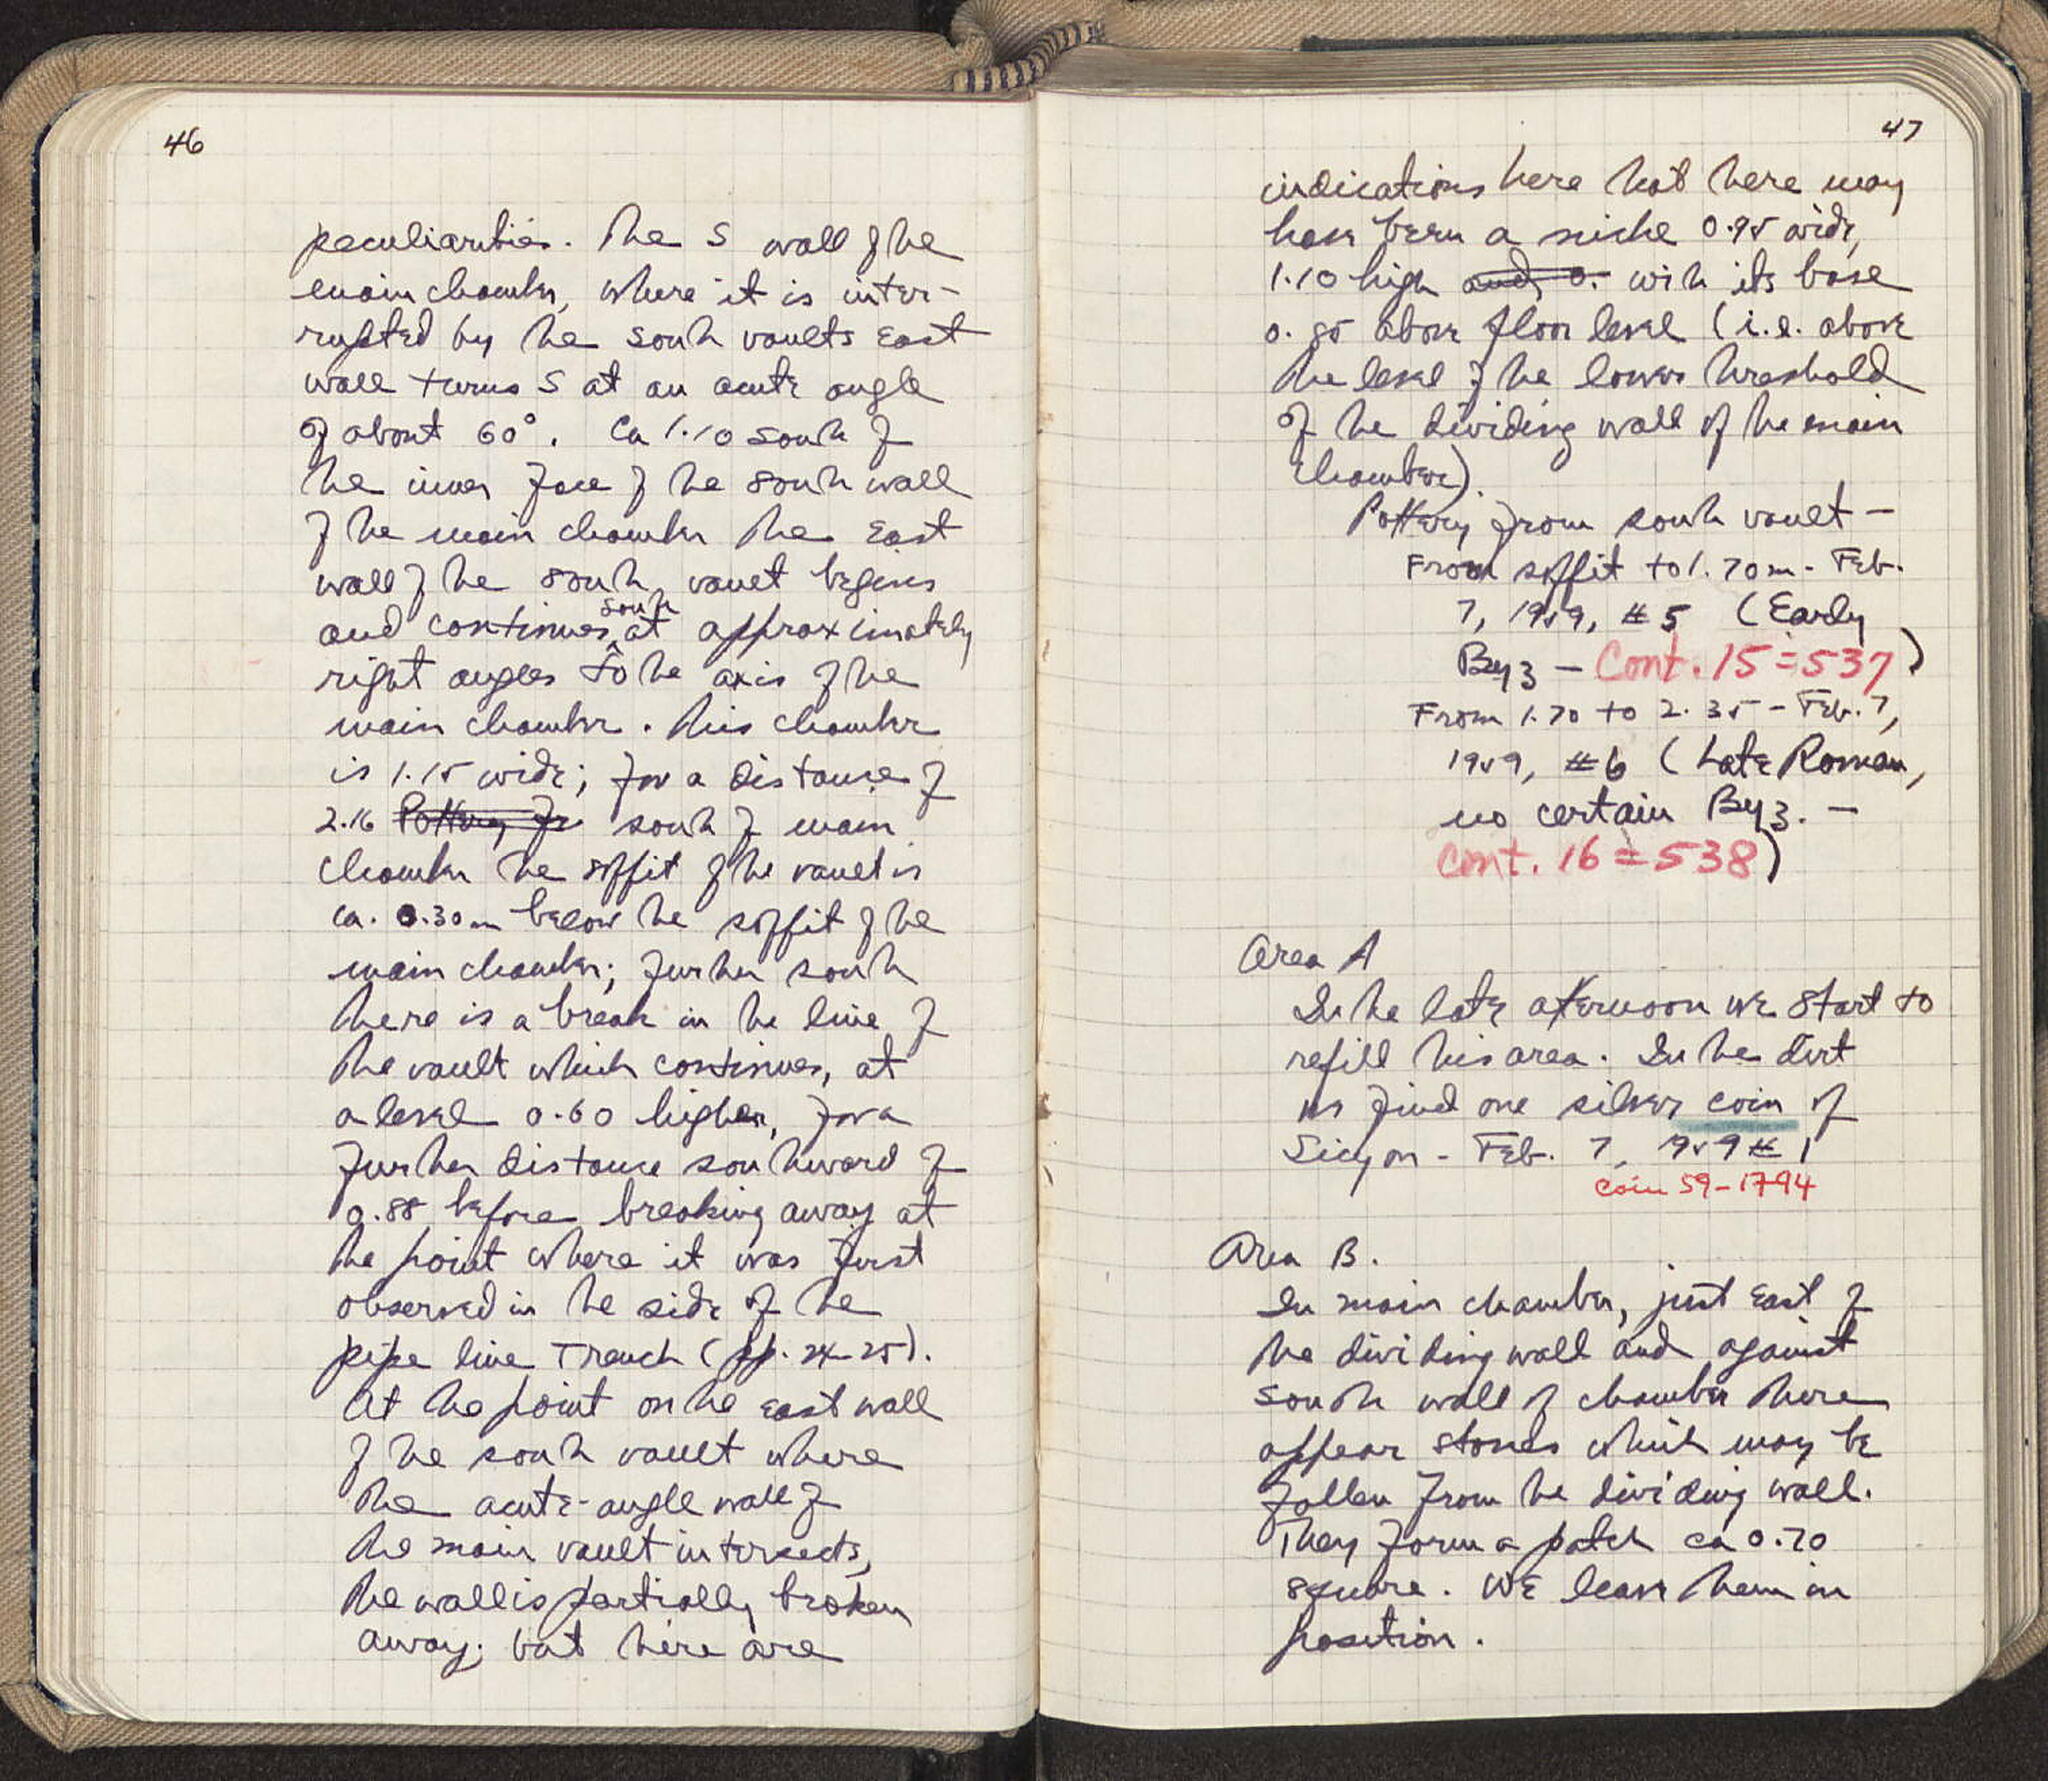 46
peculiarities. The S wall of the
main chamber, where it is inter-
rupted by the south vaults East
wall turns S at an acute angle
of about 60°. Ca 1.10 south of
the inner face of the south wall
of the main chamber the East
wall of the south vault begins
and continues south at approximately
right angles to the axis of the
main chamber. This chamber
is 1.15 wide; for a distance of
2.16 Pottery fr south of main
chamber the soffit of the vault is
ca. 0.30m below the soffit of the
main chamber; further south
there is a break in the line of
the vault which continues, at
a level 0.60 higher, for a
further distance southward of
0.88 before breaking away at
the point where it was first
observed in the side of the
pipe line Trench (pp. 24-25).
At the point on the east wall
of the south vault where
the acute-angle wall of
the main vault intersects,
the wall is partially broken
away; but there are
47
indications here that there may
have been a niche 0.95 wide,
1.10 high and 0. with its base
0.85 above floor level (i.e. above
the level of the lower threshold
of the dividing wall of the main
chamber).
Pottery from south vault -
From soffit to 1.70m - Feb.
7, 1959, #5 (Early
Byz - Cont. 15 = 537)
From 1.70 to 2.35 - Feb. 7,
1959, #6 (Late Roman,
no certain Byz. -
Cont. 16 = 538)
Area A
In the late afternoon we start to
refill this area. In the dirt
we find one silver coin of
Sicyon - Feb. 7, 1959 #1
coin 59-1794
Area B.
In main chamber, just East of
the dividing wall and against
south wall of chamber there
appear stones which may be
fallen from the dividing wall.
They form a patch ca 0.70
square. We leave them in
position.